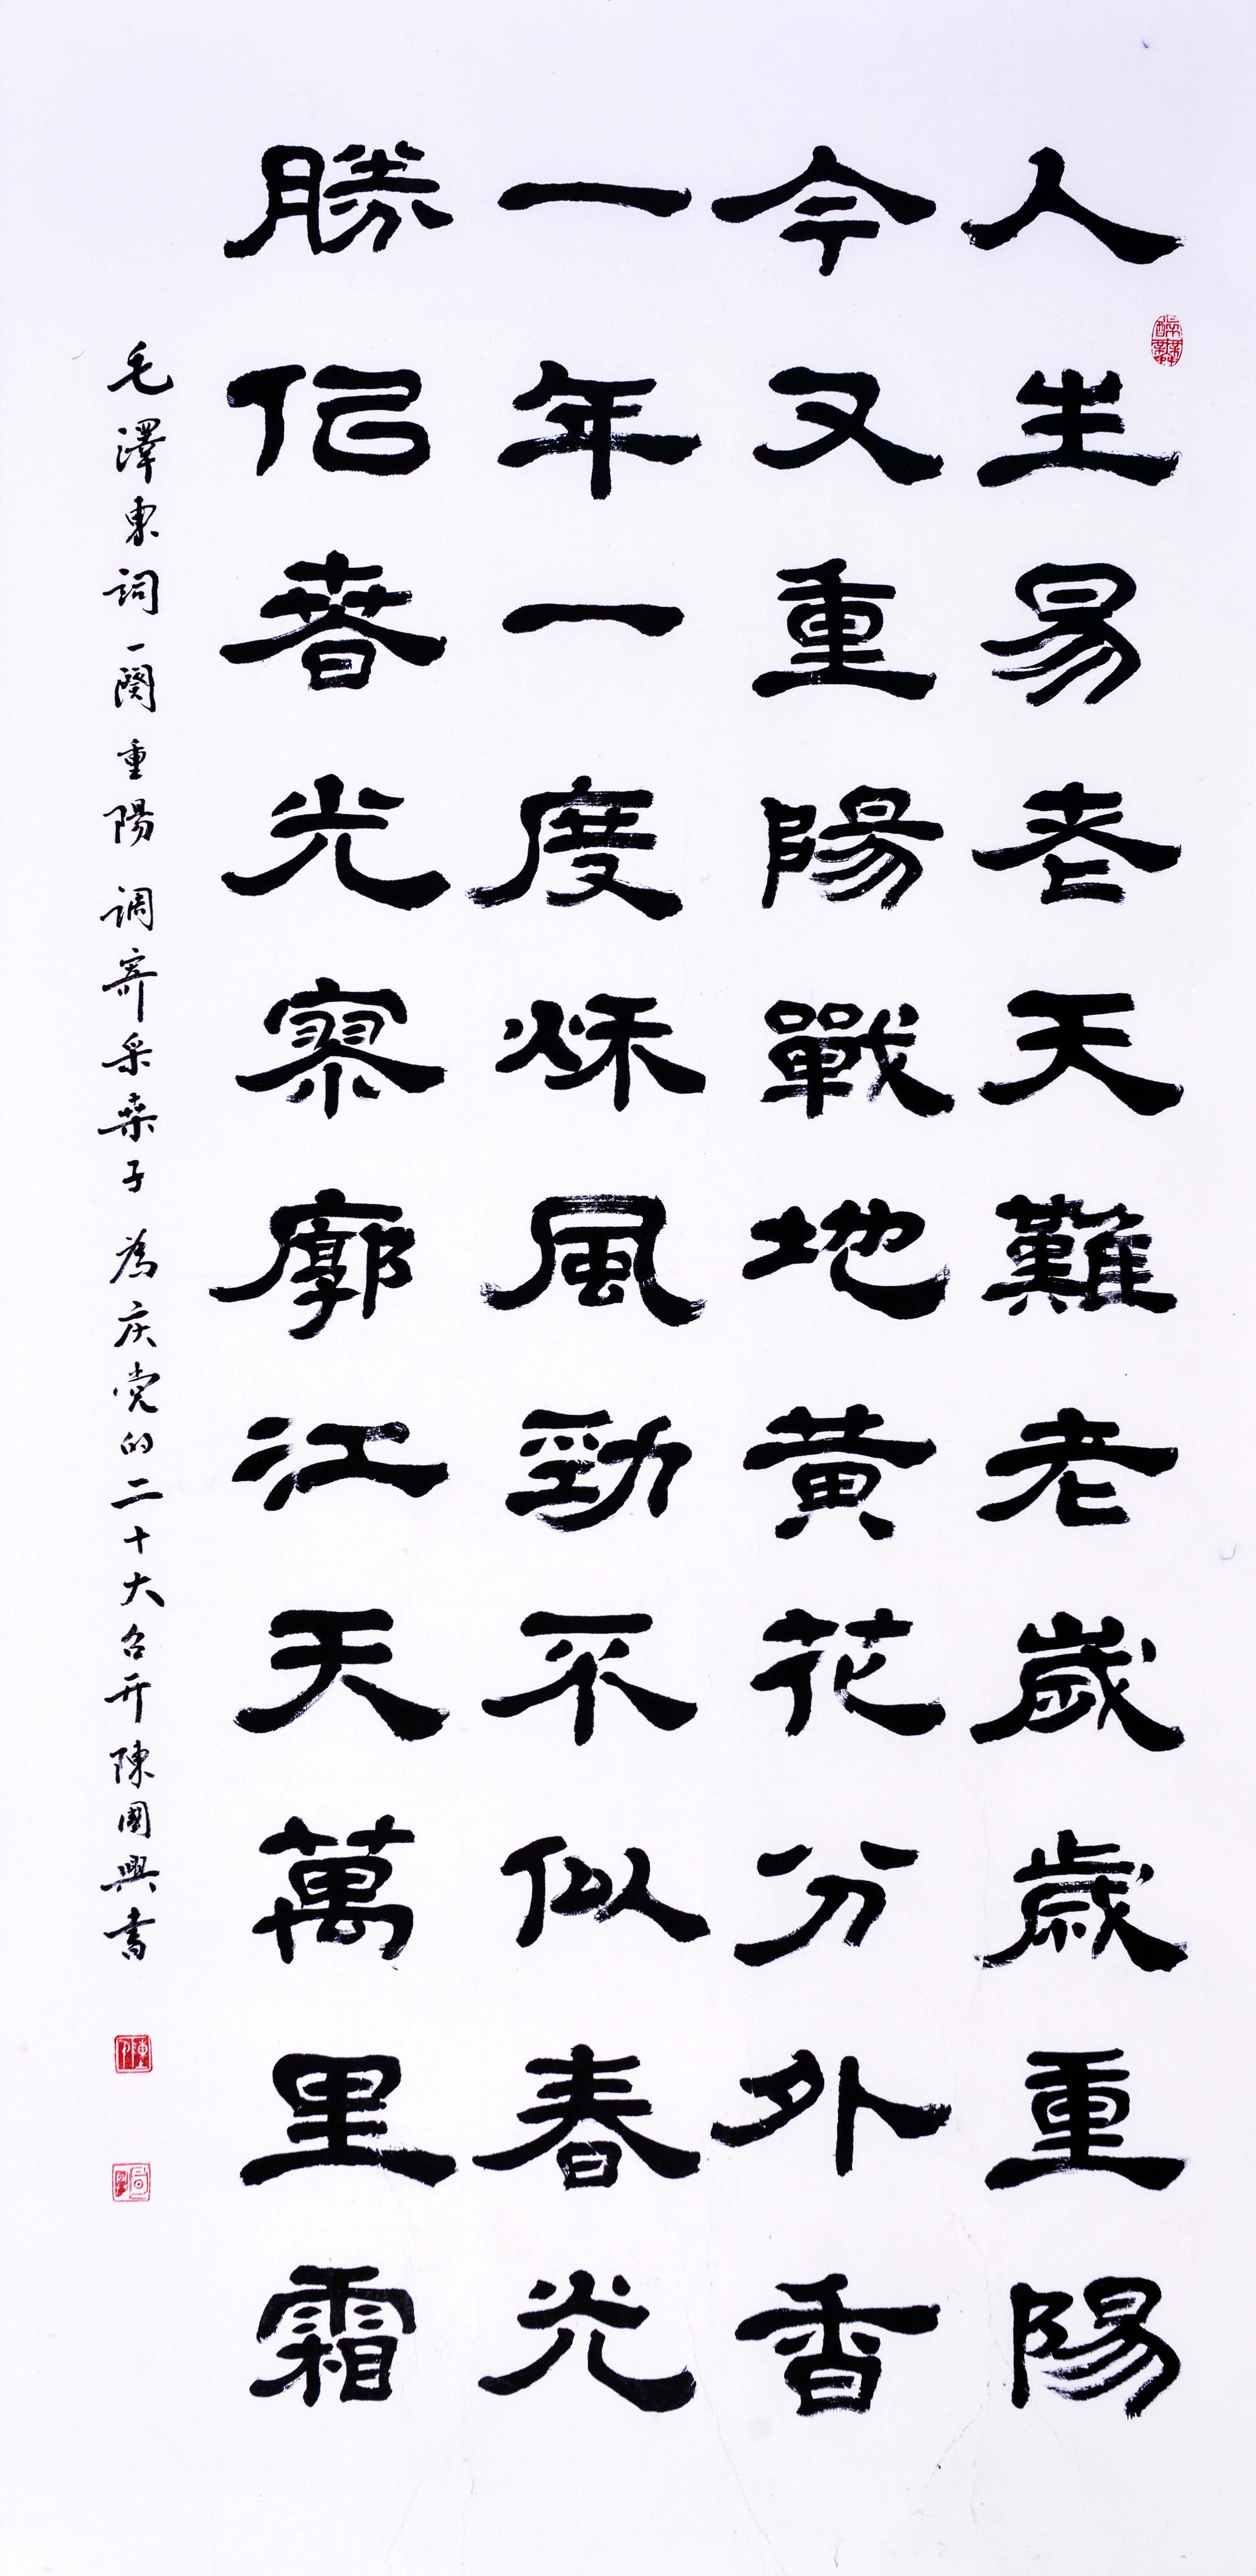 人生易老天難老歲歲重陽
今又重陽戰地黄花分外香
一年一度秌風勁不似春光
勝似春光寥廓江天萬里霜
毛澤東詞一闋重陽 調寄采桑子 為庆党的二十大召开陳國興书